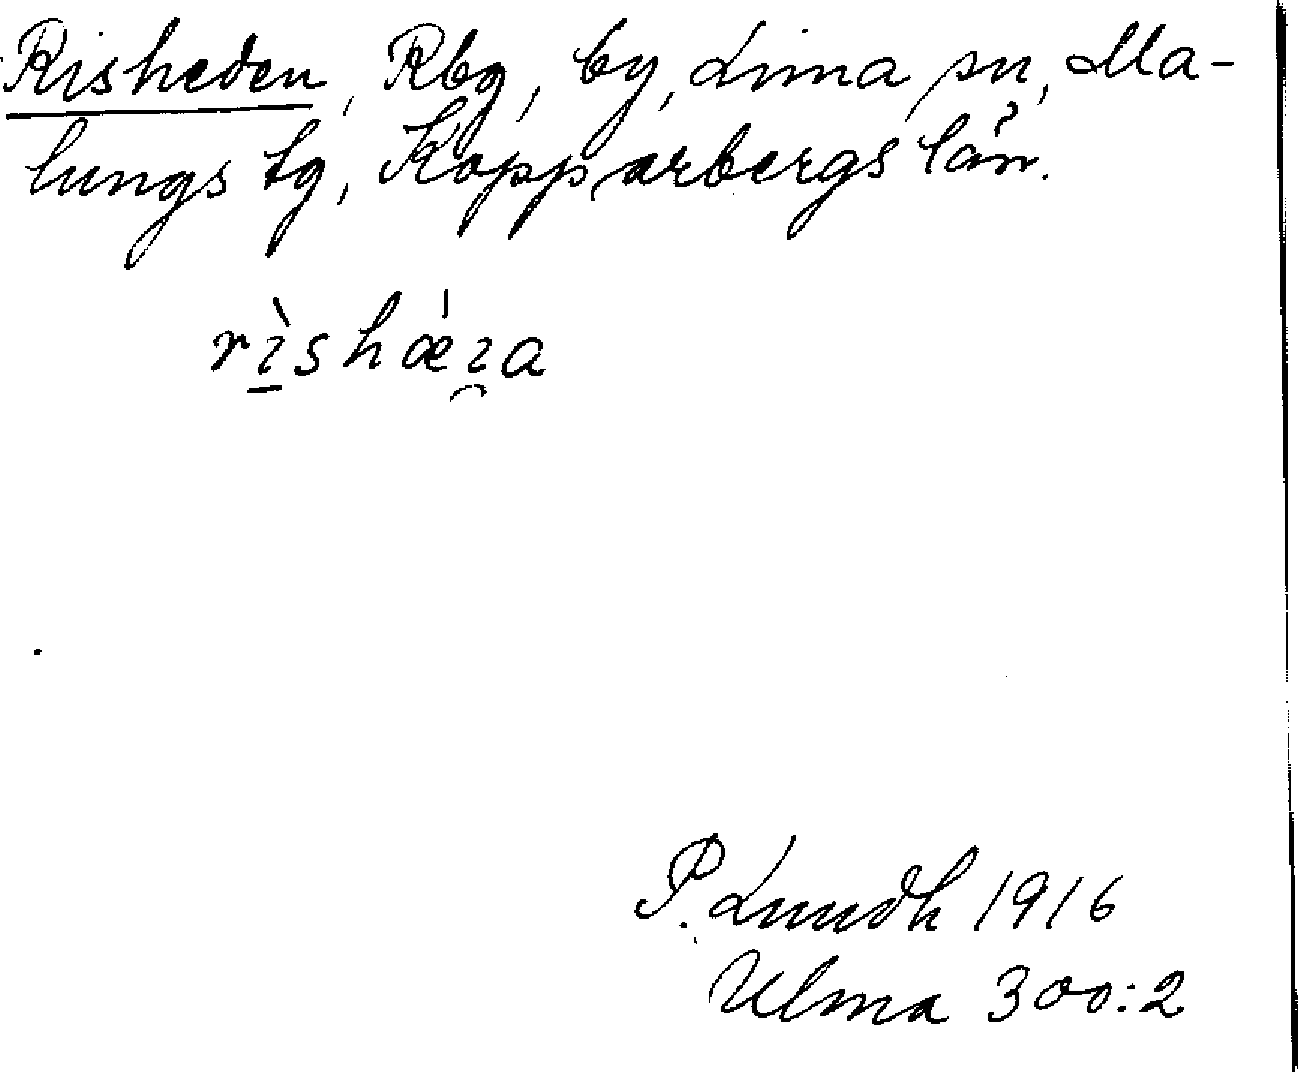 Risheden, Rbg, by, Lima sn, Ma-
lungs tg, Kopparbergs län.
rı̱̀shǽı̯a
P. Lundh 1916
Ulma 300:2